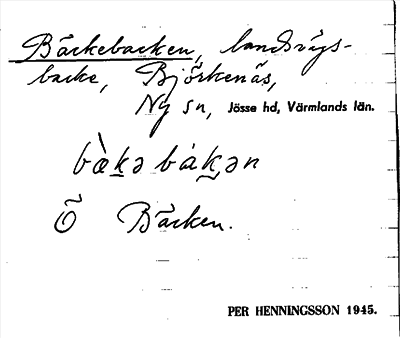 Bäckebacken, landsvägs-
backe, Björkenäs,
Ny sn, Jösse hd, Värmlands län.
bæ̀k̠ə bák̠ən
Ö Bäcken.
PER HENNINGSSON 1945.